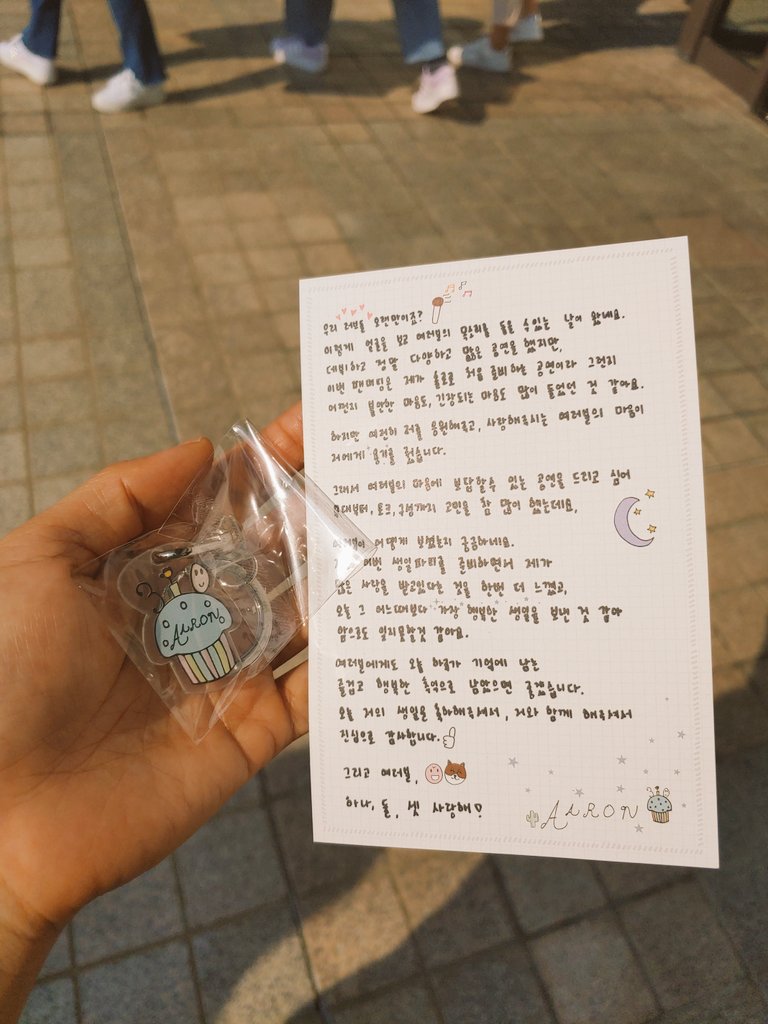 우리 러브들 오랜만이죠?
이렇게 얼굴을 보고 여러분의 목소리를 들을 수 있는 날이 왔네요.
데뷔하고 정말 다양하고 많은 공연을 했지만,
이번 팬미팅은 제가 홀로 처음 준비하는 공연이라 그런지
어쩐지 불안한 마음도, 긴장되는 마음도 많이 들었던 것 같아요.
하지만 여전히 저를 응원해주고, 사랑해주시는 여러분의 마음이
저에게 용기를 줬습니다.
그래서 여러분의 마음에 보답할 수 있는 공연을 드리고 싶어
무대부터, 토크, 구성까지 고민을 참 많이 했는데요,
어떻게 보셨는지 궁금하네요.
이번 생일파티를 준비하면서 제가
많은 사랑을 받고있다는 것을 한번 더 느꼈고,
오늘 그 어느때보다 가장 행복한 생일을 보낸 것 같아
앞으로도 잊지못할것 같아요.
여러분에게도 오늘 하루가 기억에 남는
즐겁고 행복한 추억으로 남았으면 좋겠습니다.
오늘 저의 생일을 축하해주셔서, 저와 함께 해주셔서
진심으로 감사합니다.
그리고 여러분,
하나, 둘, 셋 사랑해♡
AARON
AARON